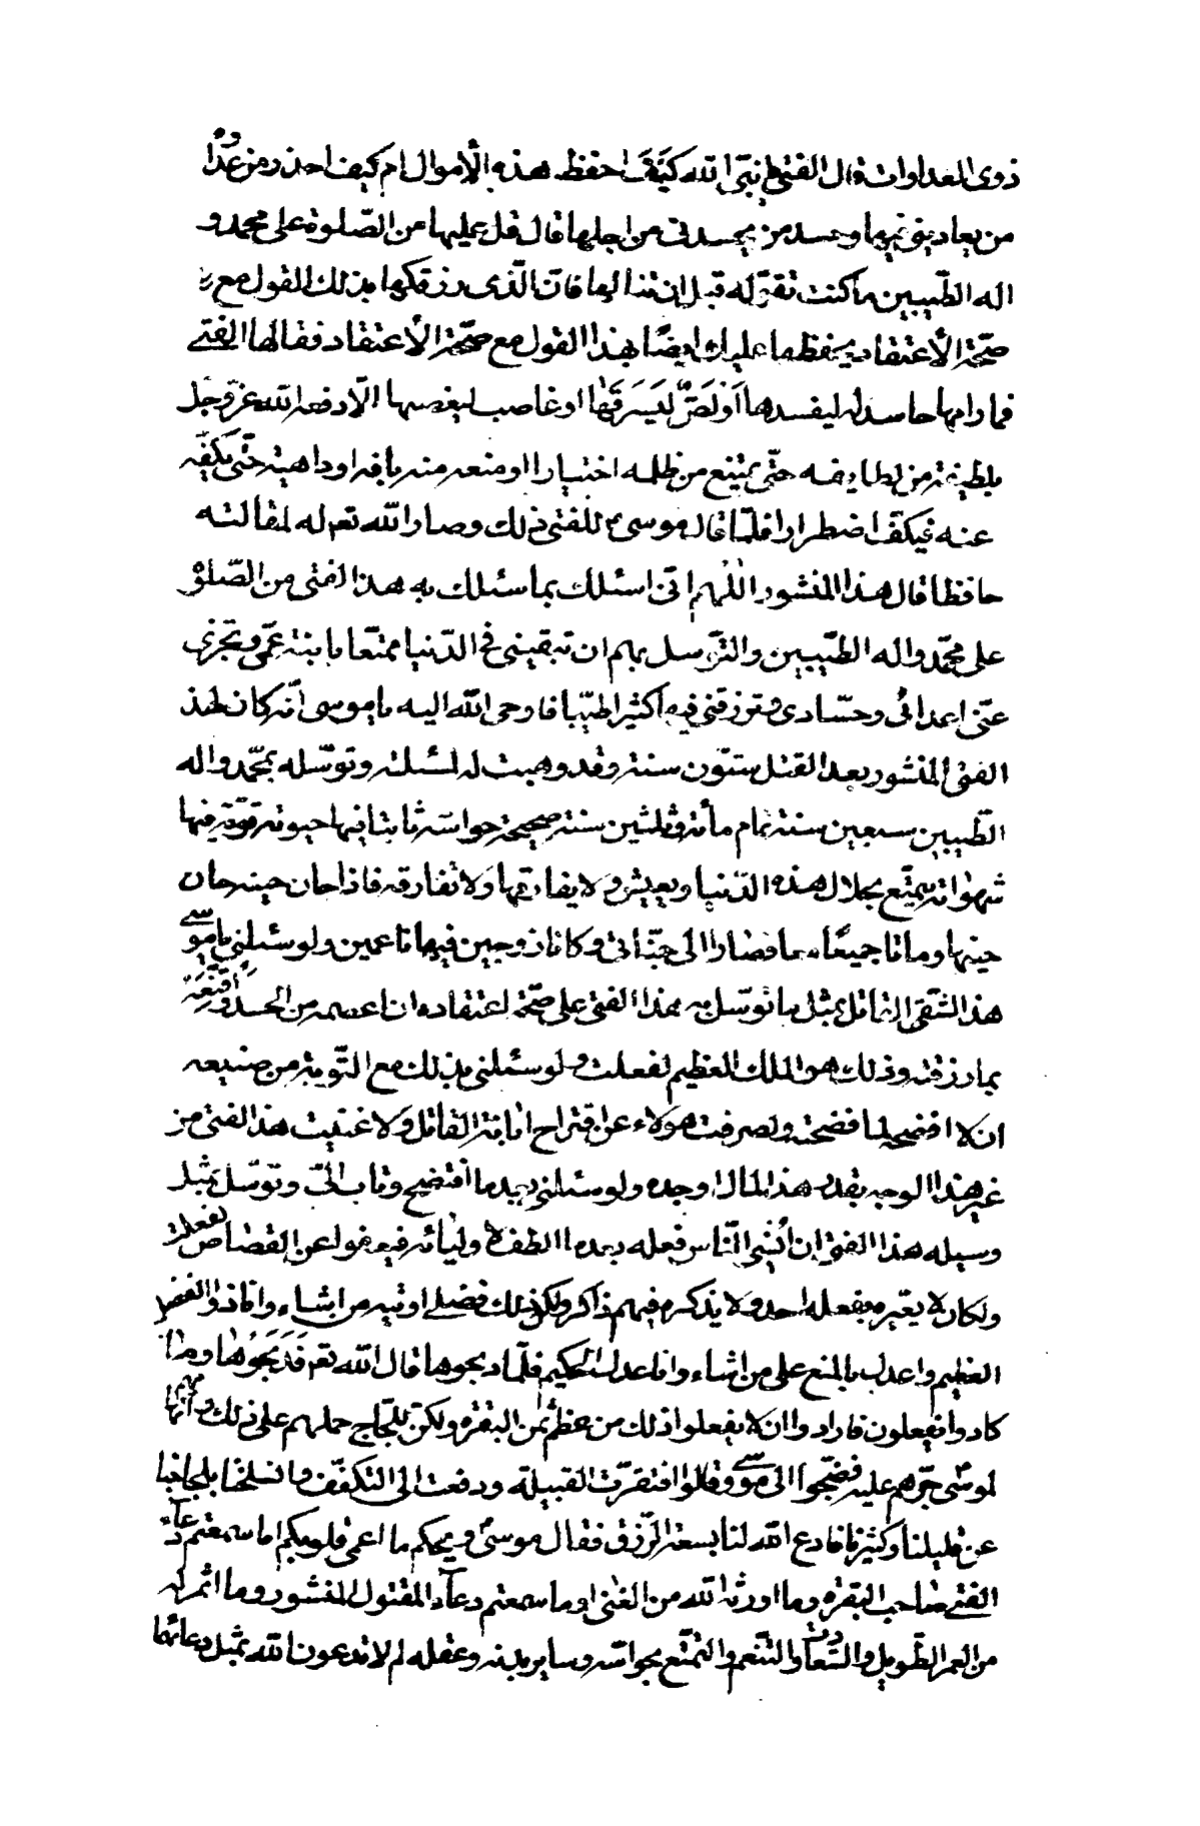 ذوى العداوات قال الفتى يا نبىّ الله كَيفَ احفظ هذه الأموال ام كيف احذر من عُدوّا
من يعادينى فيها وحسد من يحسدنى من اجلها قال قل عليها من الصّلوة على محمد و
اله الطّيبين ما كنت تقوله قبل ان تنالها فانّ الّذى رزقكها بذلك القول مع
صحّة الأعتقاد يحفظها عليك ايضًا بهذا القول مع صحّة الأعتقاد فقالها الفتى
فما رامها حاسد له ليفسدها اَو لِصّ لِيَسرِقَها او غاصب ليغصبها الّا دفعه الله عزّ وجل
بلطيفة من لطايفه حتّى يمتنع من ظلمه اختيارا او منعه منه بافة او داهية حتّى يَكفّه
عنه فيكفّ اضطرارا فلمّا قال موسى ع للفتى ذلك وصار الله تعـ له لمقالته
حافظا قال هذا المنشور اللّهم انّى اسئلك بما سئلك به هذا الفتى من الصّلوة
على محمّد واله الطّيبين والتوسل بهم ان تبقينى فى الدّنيا ممتّعا بابنة عمّى وتجزى
عنّى اعدائى وحسّادى وترزقنى فيها كثيرا طيّبا فاوحى الله اليه يا موسى انّه كان لهذ
الفتى المنشور بعد القتل ستّون سنة وقد وهبت له لمسئلته وتوسّله بمحمّد واله
الطّيبين سبعين سنة تمام مأئة وثلثين سنة صحيحة حواسّه ثابتا فيها جنانه قويّة فيها
شهواته يتمتّع بحلال هذه الدّنيا ويعيش ولا يفارقها ولا تفارقه فاذا حان حينه حان
حينها وماتا جميعًا معا فصارا الى جنّاتى وكانا زوجين فيها ناعمين ولو سئلنى يا موسى
هذا الشّقى القاتل بمثل ما توسّل به هذا الفتى على صحّة اعتقاده ان اعصمه من الحسد واُقنِعَهُ
بما رزقته وذلك هو الملك العظيم لفعلت ولو سئلنى بذلك مع التّوبة من صنيعه
ان لا افضحه لما فضحته ولصرفت هؤلاء عن اقتراح ابانة القاتل ولاغنيت هذا الفتى من
غير هذا الوجه بقدر هذا المال اوجده ولو سئلنى بعد ما افتضح وتاب الىّ وتوسّل بمثل
وسيلة هذا الفتى ان اُنسى النّاس فعله بعد ما الطف لاوليائه فيعفوا عن القصاص لفعلت
ولكان لا يعيّره بفعله احد ولا يذكره فيهم ذاكر ولكن ذلك فضلى اوتيه من اشاء وانا ذو الفضل
العظيم واعدل بالمنع على من اشاء وانا عدل الحكيم فلمّا ذبحوها قال الله تعـ فَذَبَحُوها وما
كادوا يفعلون فارادوا ان لا يفعلوا ذلك من عظم ثمن البقرة ولكن للّجاج حملهم على ذلك واتّهامهم
لموسىٰ جرّهم عليه فضجّوا الى موسى وقالوا افتقرت القبيلة ودفعت الى التكفّف وانسلخنا بلجاجنا
عن قليلنا وكثيرنا فادع الله لنا بسعة الرّزق فقال موسىٰ ويحكم ما اعمى قلوبكم اما سمعتم دعاء
الفتى صاحب البقرة وما اورثه الله من الغنى او ما سمعتم دعآء المقتول المنشور وما اثمر له
من العمر الطّويل والسّعادة والتّنعم والتمتّع بحواسّه وساير بدنه وعقله لم لا تدعون الله بمثل دعائهما